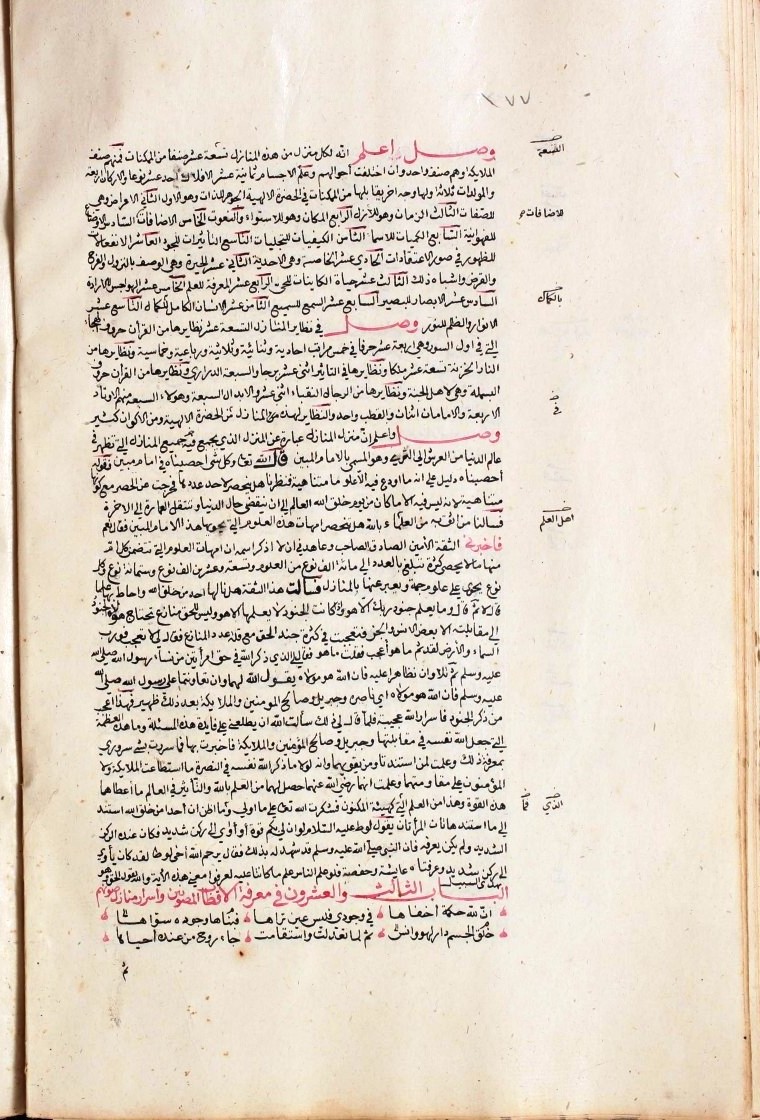 ١٧٧
وصل اعلم انه لكل منزل من هذه المنازل تسعة عشر صنفا من الممكنات فمنهم صنف
الملايكة وهم صنف واحد وان اختلفت احوالهم وعلم الاجسام ثمانية عشر الافلاك احد عشر نوعا والاركان اربعة
والمولدات ثلاثة ولها وجه اخر يقابلها من الممكنات في الحضرة الالهية الجوهر للذات وهو الاول الثاني الاعراض وهي
للصفات الثالث الزمان وهو للازل الرابع المكان وهو للاستواء والنعوت الخامس الاضافات السادس الاوضاع
للفهوانية السابع الكميات للاسماء الثامن الكيفيات للتجليات التاسع التاثيرات للجود العاشر الانفعالات
للظهور في صور الاعتقادات الحادي عشر الخاصية وهي الاحدية الثاني عشر الحيرة وهي الوصف بالنزول والفرح
والقرض واشباه ذلك الثالث عشر حياة الكاينات للحي الرابع عشر المعرفة للعلم الخامس عشر الهواجس للارادة
السادس عشر الابصار للبصير السابع عشر السمع للسميع الثامن عشر الانسان الكامل للكمال التاسع عشر
الانوار والظلم للنور وصل في نظاير المنازل التسعة عشر نظايرها من القرأن حروف الهجا
التي في اول السور وهي اربعة عشر حرفا في خمس مراتب احادية وثنائية وثلاثية ورباعية وخماسية ونظايرها من
النار الخزنة تسعة عشر ملكا ونظايرها في التاثير اثني عشر برجا والسبعة الدراري ونظايرها من القران حروف
البسملة وهي لاهل الجنة ونظايرها من الرجال النقباء اثني عشر والابدال السبعة وهولاء السبعة منهم الاوتاد
الاربعة والامامان اثنان والقطب واحد والنظاير لهذه المنازل من الحضرة الالهية ومن الاكوان كثير
وصل واعلم ان منزل المنازل عبارة عن المنزل الذي يجمع فيه جميع المنازل التي تظهر في
عالم الدنيا من العرش الى الثرى وهو المسمى بالامام المبين قال الله تعا وكل شي احصيناه في امام مبين فقوله
احصيناه دليل على انه ما اودع فيه الا علوما متناهية فنظرنا هل ينحصر لاحد عددها فخرجت عن الحصر مع كونها
متناهية لانه ليس فيه الا ما كان من يوم خلق الله العالم الى ان ينقضي حال الدنيا وتنتقل العمارة الى الاخرة
فسالنا من اثق به من العلماء بالله هل تنحصر امهات هذه العلوم التي يحويها هذا الامام المبين فقال نعم
فاخبرني الثقة الأمين الصادق الصاحب وعاهدني ان لا اذكر اسمه ان امهات العلوم التي تتضمن كل ام
منها ما لا يحصى كثرة تبلغ بالعدد الى مائة الف نوع من العلوم وتسعة وعشرين الف نوع وستمائة نوع وكل
نوع يحوي على علوم جمة ويعبر عنها بالمنازل فسالت هذا الثقة هل نالها احد من خلق الله واحاط بها علما
قال لا ثم قال وما يعلم جنود ربك الا هو واذا كانت الجنود لا يعلمها الا هو وليس للحق منازع تحتاج هؤلاء الجنود
الى مقابلته الا بعض الانس والجن فتعجبت في كثرة جند الحق مع قلة عدد المنازع فقال لي لا تعجب فورب
السماء والأرض لقد ثم ما هو أعجب فقلت ماهو فقال لي الذي ذكر الله في حق امرأتين من نساء رسول الله صلى الله
عليه وسلم ثم تلا وان تظاهرا عليه فان الله هو مولاه يقول الله لهما وان تعاونتما على رسول الله صلى الله
عليه وسلم فان الله هو مولاه اي ناصره وجبريل وصالح المومنين والملايكة بعد ذلك ظهير فهذا اعجب
من ذكر الجنود فاسرار الله عجيبة فلما قال لي ذلك سالت الله ان يطلعني على فايدة هذه المسئلة وما هذه العظمة
التي جعل الله نفسه في مقابلتها وجبريل وصالح المؤمنين والملايكة فاخبرت بها فما سررت بشي سروري
بمعرفة ذلك وعلمت لمن استندتا ومن يقويهما وانه لولا ما ذكر الله نفسه في النصرة ما استطاعت الملايكة ولا
المؤمنون على مقاومتهما وعلمت انهما رضي الله عنهما حصل لهما من العلم بالله والتأثير في العالم ما أعطاهما
هذه القوة وهذا من العلم الذي كهيئة المكنون فشكرت الله تعا على ما اولى وما اظن ان أحدا من خلق الله استند
الى ما استند هاتان المرأتان يقول لوط عليه السلام لو ان لي بكم قوة أو أوي الى ركن شديد فكان عنده الركن
الشديد ولم يكن يعرفه فان النبي صلى الله عليه وسلم قد شهد له بذلك فقال يرحم الله اخي لوطا لقد كان يأوي
الى ركن شديد وعرفتاه عايشة وحفصة فلو علم الناس علم ما كانتا عليه لعرفوا معنى هذه الأية والله يقول الحق وهو
يهدي السبيل
الباب الثالث والعشرون في معرفة الاقطاب المصونين واسرار منازل صونهم
ان لله حكمة أخفاها في وجودي فليس عين تراها
خلق الجسم دار لهو وانس فبناها وجوده سواها
ثم لما تعدلت واستقامت جاء روح من عنده أحياها
ثم
التسعة
للاضافات
بالكمال
في
اهل العلم
الذي